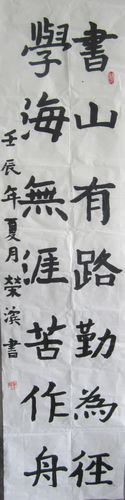 書山有路勤為徑
學海無涯苦作舟
壬辰年夏月榮濱書